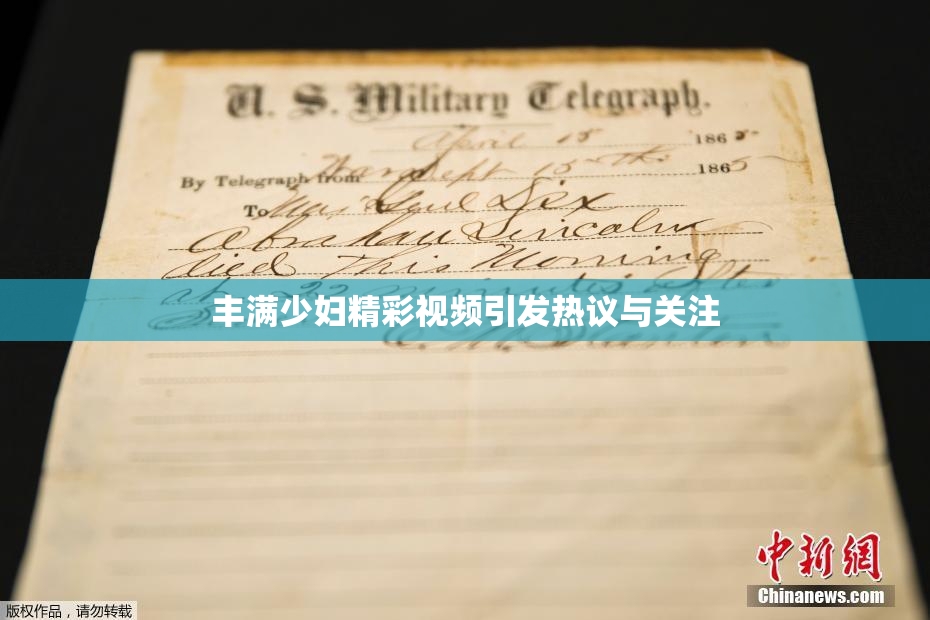 U. S. Military Telegraph.
April 15 1865
By Telegraph from War Dept 15th 1865
To Maj Genl Dix
Abraham Lincoln
died This Morning
at 22 minutes after
丰满少妇精彩视频引发热议与关注
Stanton
中新网
Chinanews.com
版权作品，请勿转载